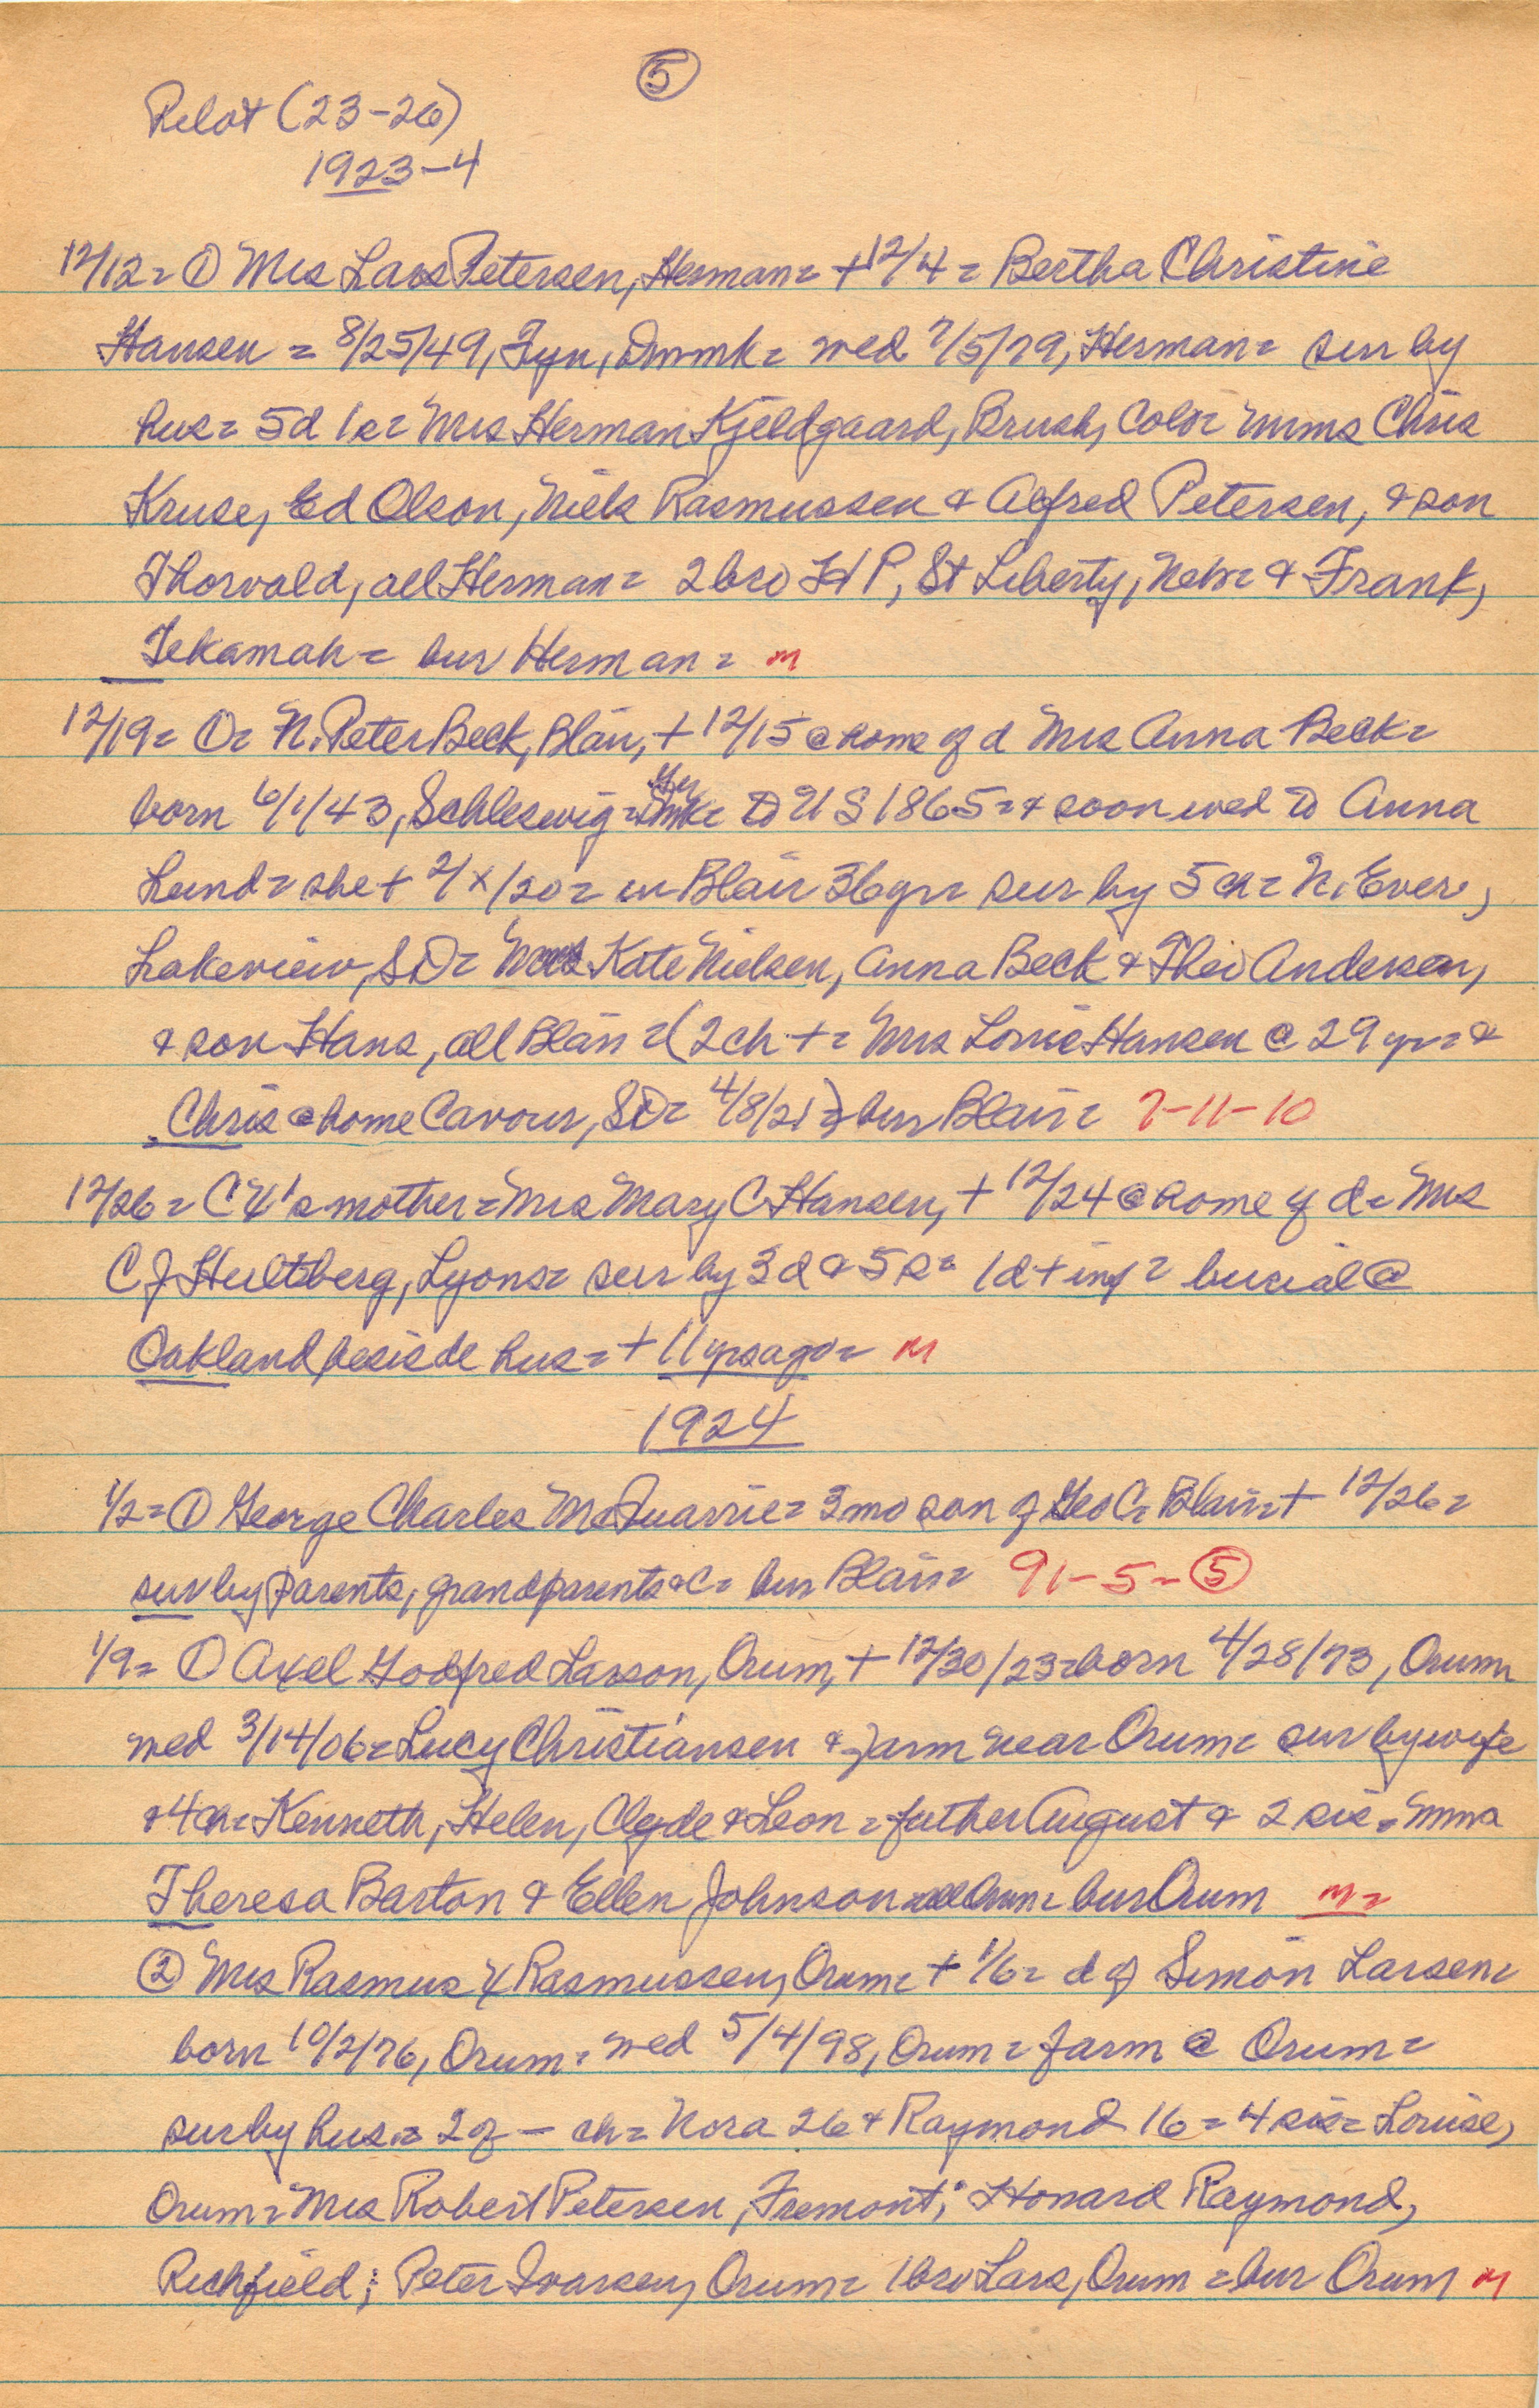 5
Pilot (23-26)
1923-4
12/12 = ① Mrs Lars Petersen, Herman = + 12/4 = Bertha Christine
Hansen = 8/25/49, Fyn, Dnmk = wed 7/5/79, Herman = sur by
hus = 5d 1s = Mrs Herman Kjeldgaard, Brush, Colo = Mmms Chris
Kruse, Ed Olson, Niels Rasmussen & Alfred Petersen, & son
Thorvald, all Herman = 2 bro HP, St Liberty, Nebr = & Frank,
Tekamah = bur Herman = M
12/19 = ① = N. Peter Beck, Blair, + 12/15 @ home of d Mrs Anna Beck =
born 6/1/43, Schleswig = Ger Dnmk = to US 1865 = & soon wed to Anna
Lund = she + 2/x/20 = in Blair 36 yr = sur by 5 ch = N. Ever,
Lakeview, SD = Mmes Kate Nielsen, Anna Beck & Theo Andersen,
& son Hans, all Blair = (2 ch + = Mrs Louie Hansen @ 29 yr = &
Chris @ home Cavour, SD = 4/8/21) = bur Blair = 7-11-10
12/26 = C 4's mother = Mrs Mary C Hansen, + 12/24 @ home of d = Mrs
C J Hultberg, Lyons = sur by 3d & 5s = 1d + inf = burial @
Oakland beside hus = + 11 yrs ago = M
1924
1/2 = ① George Charles McQuarrie = 3 mo son of Geo C = Blair = + 12/26 =
sur by parents, grandparents &c = bur Blair = 91-5-⑤
1/9 = ① Axel Godfred Larson, Orum, + 12/30/23 = born 4/28/73, Orum
wed 3/14/06 = Lucy Christiansen & farm near Orum = sur by wife
& 4 ch = Kenneth, Helen, Clyde & Leon = father August & 2 sis = Mmms
Theresa Barton & Ellen Johnson all Orum = bur Orum M =
② Mrs Rasmus 4 Rasmussen, Orum = + 1/6 = d of Simon Larsen =
born 10/2/76, Orum = wed 5/4/98, Orum = farm @ Orum =
sur by hus = 2 of - ch = Nora 26 & Raymond 16 = 4 sis = Louise,
Orum = Mrs Robert Petersen, Fremont; Howard Raymond,
Richfield; Peter Ivarsen, Orum = 1 bro Lars, Orum = bur Orum M